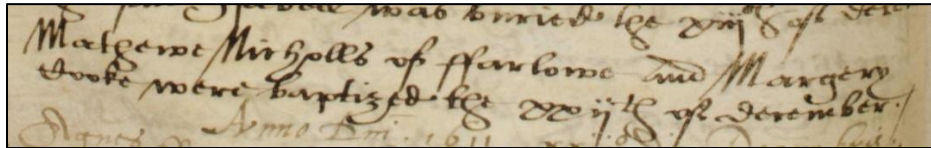 was buried the xiijth of dece
Mathewe Nicholls of ffarlowe and Margery
Cooke were baptized the xxijth of december
Anno Dni 1611
Agnes